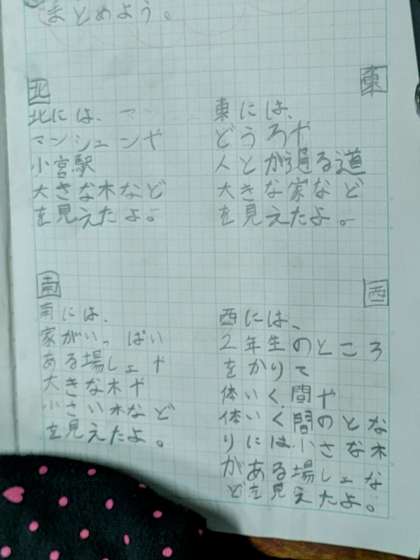 まとめよう。
東
東には、
どうろや
人とが通る道
大きな家など
を見えたよ。
北
北には、
マンションや
小宮駅
大きな木など
を見えたよ。
西
西には、
2年生のところ
をかりて
体いく間や
体いく間のとな
りには小さな木
がある場しょな
どを見えたよ。
南
南には、
家がいっぱい
ある場しょや
大きな木や
小さい木など
を見えたよ。